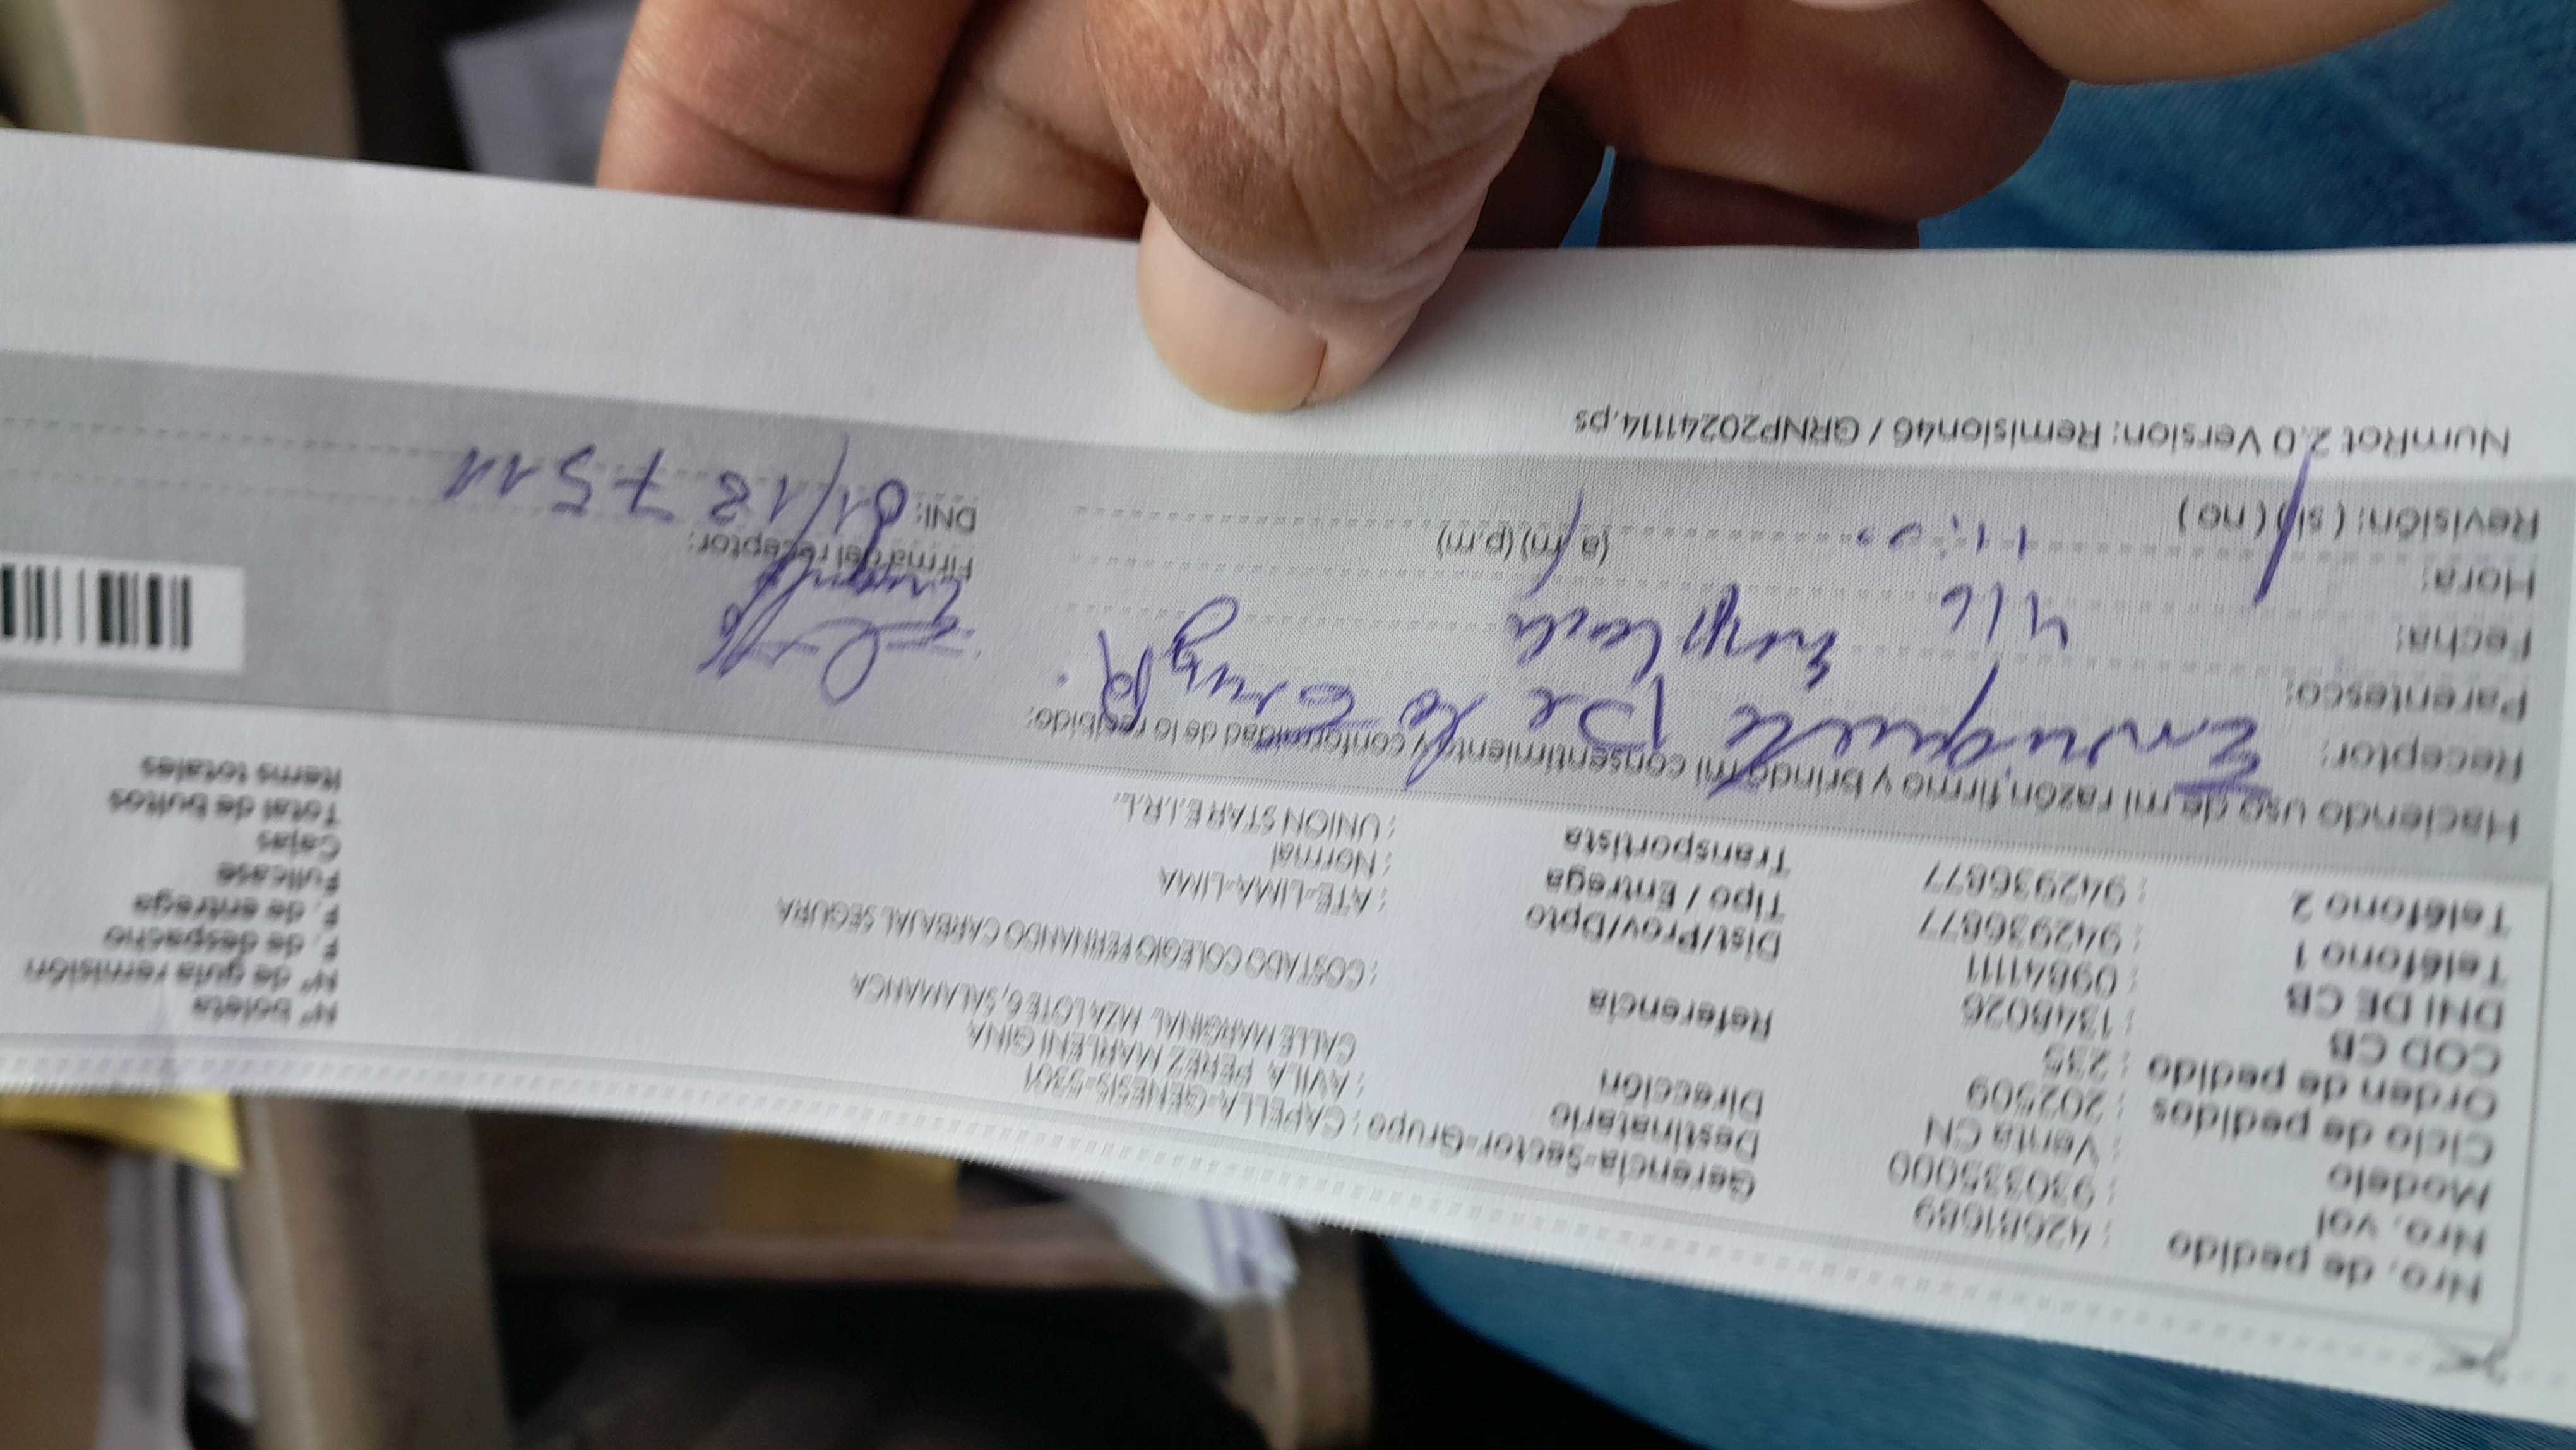 Nro. de pedido : 42681689 Gerencia-Sector-Grupo : CAPELLA-GENESIS-5301 N° boleta
Nro. vol : 930335000 Destinatario : AVILA PEREZ MARLENI GINA N° de guía remisión
Modelo : Venta CN Dirección CALLE MARGINAL MZA LOTE 6, SALAMANCA F. de despacho
Ciclo de pedidos : 202509 Referencia : COSTADO COLEGIO FERNANDO CARBAJAL SEGURA F. de entrega
Orden de pedido : 235 Dist/Prov/Dpto : ATE-LIMA-LIMA Fullcase
COD CB : 1348026 Tipo / Entrega : Normal Cajas
DNI DE CB : 09841111 Transportista : UNION STAR E.I.R.L. Total de bultos
Teléfono 1 : 942936877 Items totales
Teléfono 2 : 942936877
Haciendo uso de mi razón, firmo y brindo mi consentimiento y conformidad de lo recibido:
Receptor: De la
Parentesco:
Fecha:
Hora: 11:00 (a.m) (p.m) Firma del receptor:
Revisión: ( si ) ( no ) DNI:
NumRot 2.0 Version: Remision46 / GRNP20241114.ps